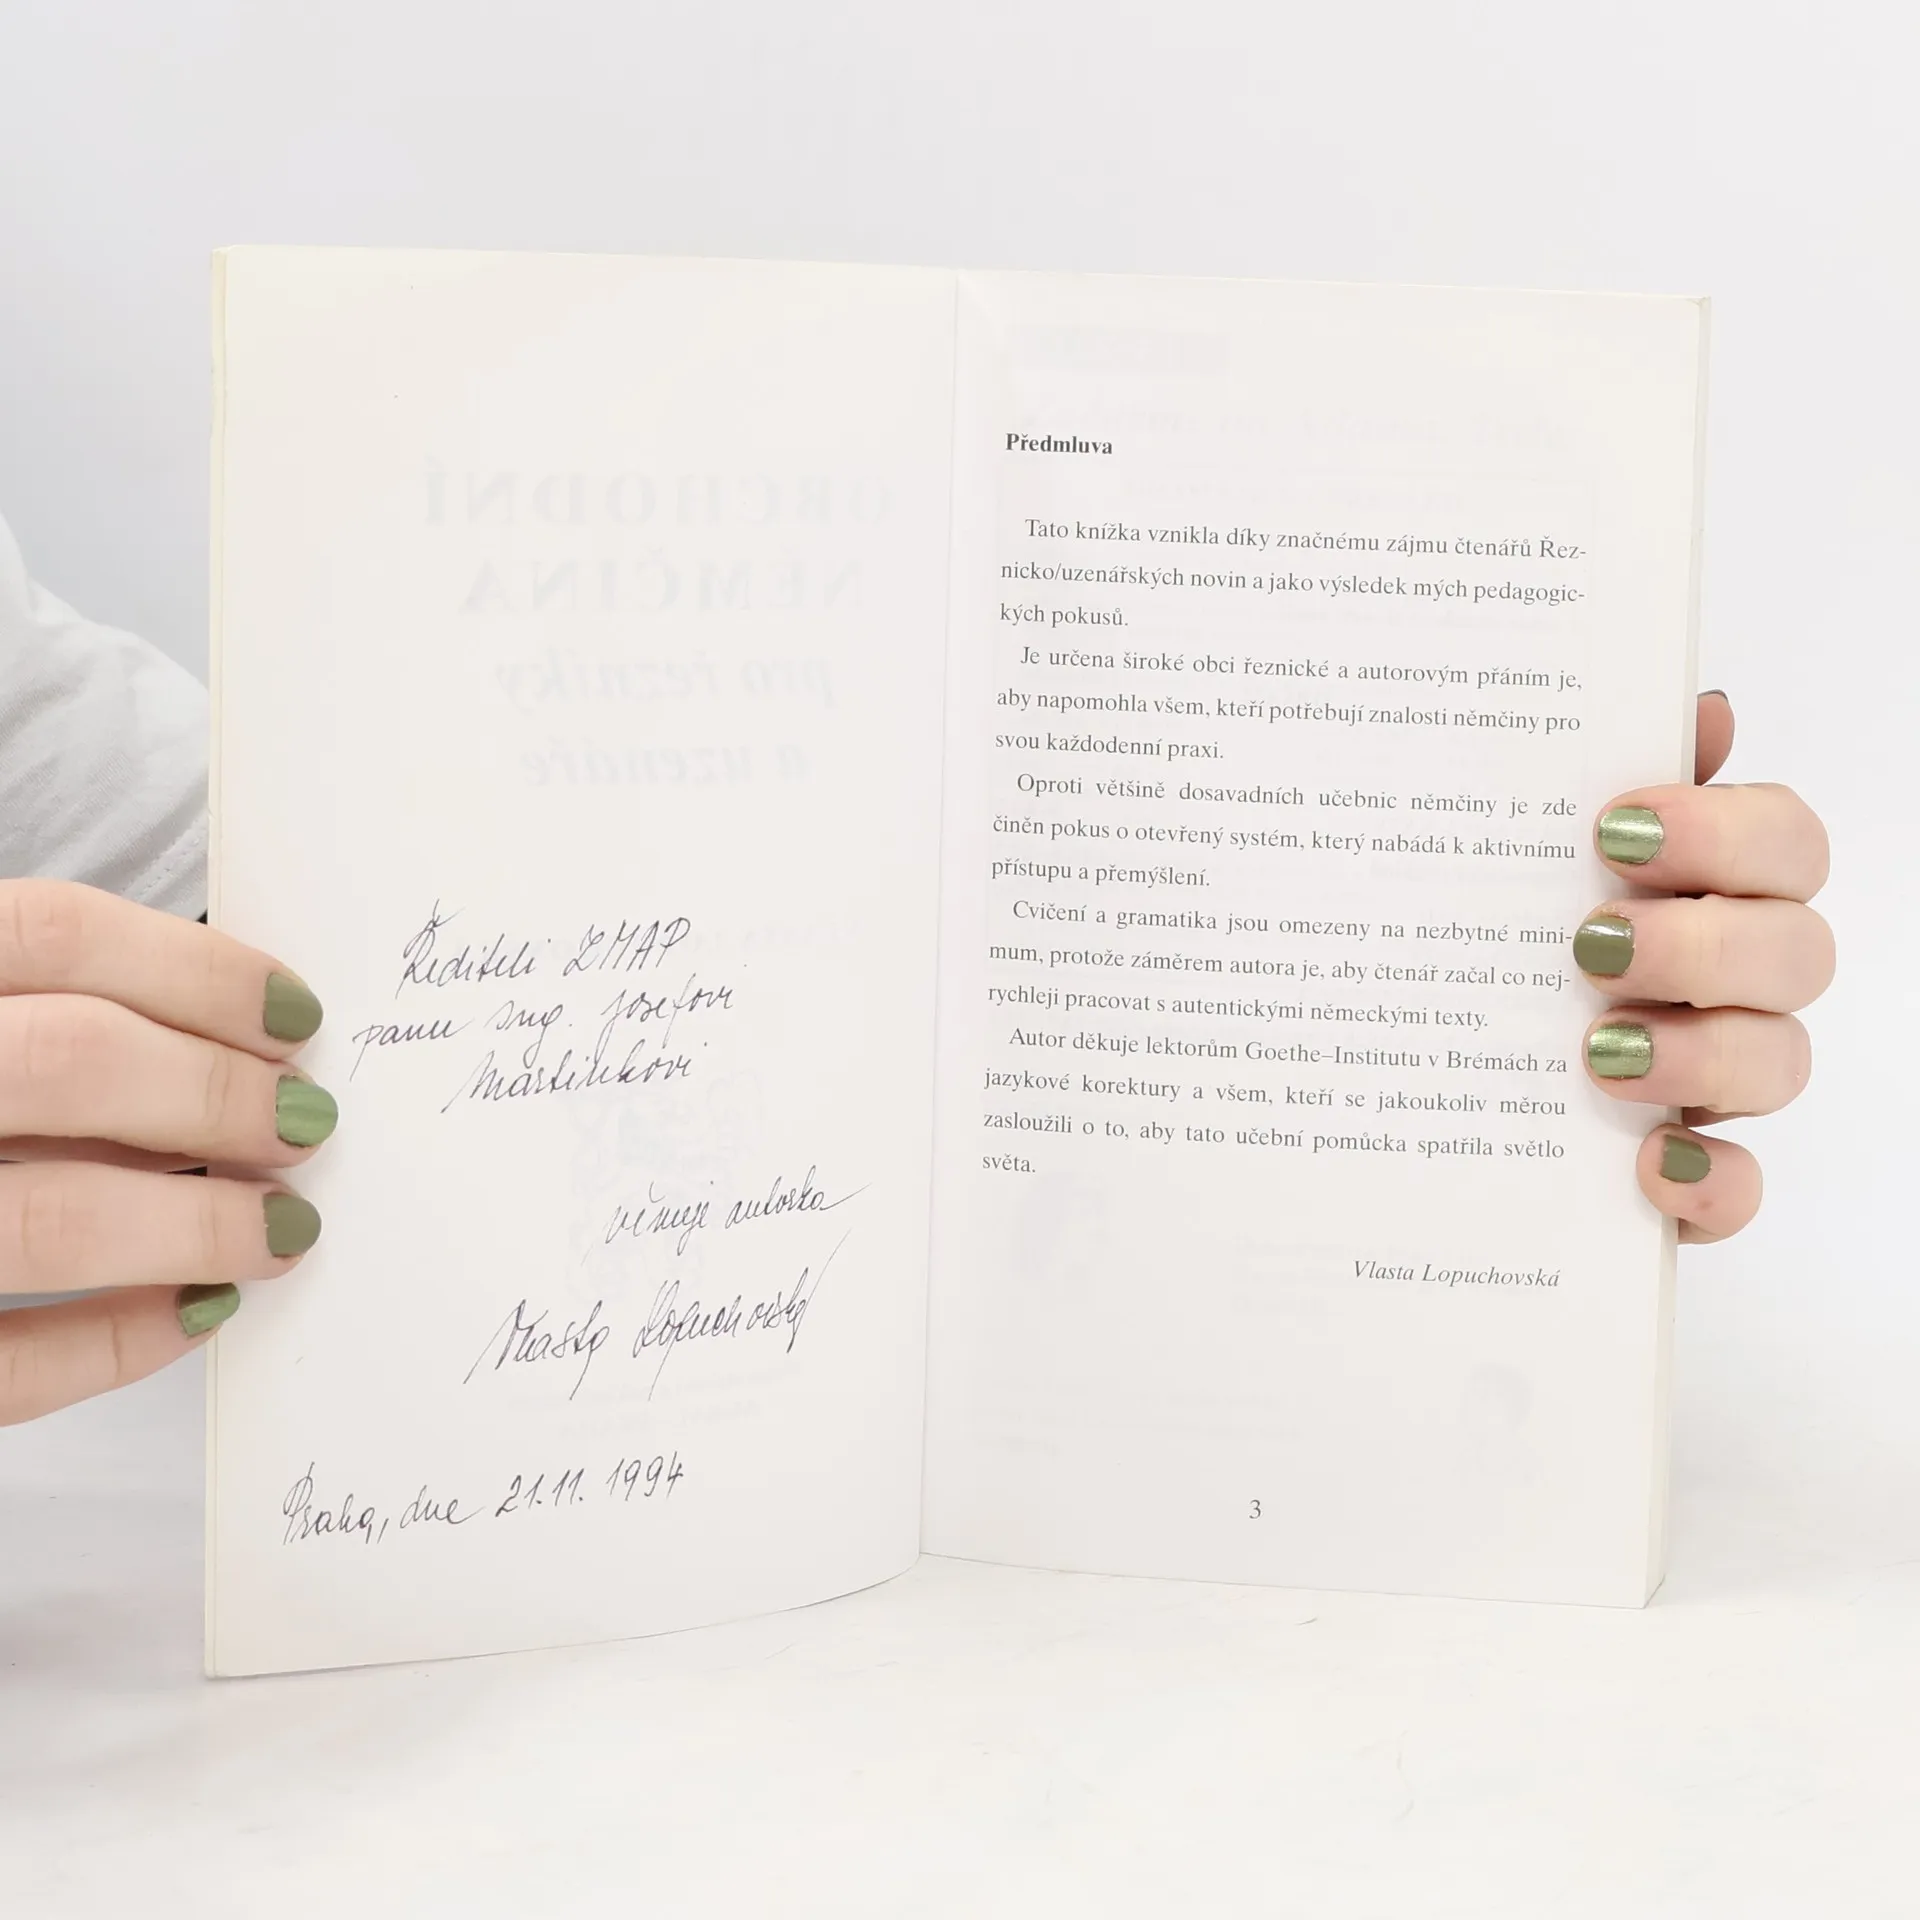 Řediteli ZMAP
panu Ing. Josefovi
Martinkovi
věnuje autorka
Vlasta Lopuchovská
Praha, dne 21.11. 1994
Předmluva
Tato knížka vznikla díky značnému zájmu čtenářů Řez-
nicko/uzenářských novin a jako výsledek mých pedagogic-
kých pokusů.
Je určena široké obci řeznické a autorovým přáním je,
aby napomohla všem, kteří potřebují znalosti němčiny pro
svou každodenní praxi.
Oproti většině dosavadních učebnic němčiny je zde
činěn pokus o otevřený systém, který nabádá k aktivnímu
přístupu a přemýšlení.
Cvičení a gramatika jsou omezeny na nezbytné mini-
mum, protože záměrem autora je, aby čtenář začal co nej-
rychleji pracovat s autentickými německými texty.
Autor děkuje lektorům Goethe–Institutu v Brémách za
jazykové korektury a všem, kteří se jakoukoliv měrou
zasloužili o to, aby tato učební pomůcka spatřila světlo
světa.
Vlasta Lopuchovská
3